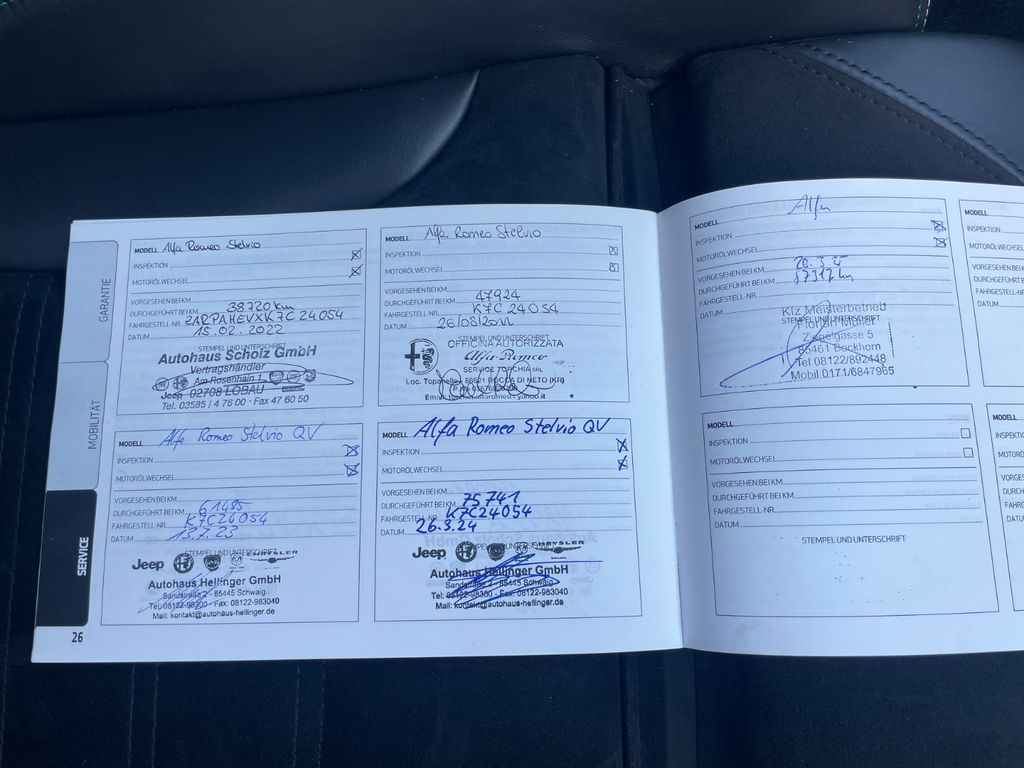 GARANTIE
MOBILITÄT
SERVICE
26
MODELL Alfa Romeo Stelvio
INSPEKTION
MOTORÖLWECHSEL
VORGESEHEN BEI KM
DURCHGEFÜHRT BEI KM 38720 km
FAHRGESTELL-NR. ZARPAHEVXK7C24054
DATUM 15.02.2022
STEMPEL UND UNTERSCHRIFT
Autohaus Scholz GmbH
Vertragshändler
Am Rosenhain 1
Jeep 02708 LÖBAU
Tel. 03585 / 4 76 00 · Fax 47 60 50
MODELL Alfa Romeo Stelvio
INSPEKTION
MOTORÖLWECHSEL
VORGESEHEN BEI KM
DURCHGEFÜHRT BEI KM 47924
FAHRGESTELL-NR. K7C24054
DATUM 26/08/2022
STEMPEL UND UNTERSCHRIFT
OFFICINA AUTORIZZATA
Alfa Romeo
SERVICE TORCHIA SRL
88821 ROCCA DI NETO (KR)
MODELL Alfa Romeo Stelvio QV
INSPEKTION
MOTORÖLWECHSEL
VORGESEHEN BEI KM
DURCHGEFÜHRT BEI KM 61485
FAHRGESTELL-NR. K7C24054
DATUM 13.7.23
STEMPEL UND UNTERSCHRIFT
Jeep CHRYSLER
Autohaus Hellinger GmbH
Sandstraße 2 - 85445 Schwaig
Tel: 08122-98300 - Fax: 08122-983040
Mail: kontakt@autohaus-hellinger.de
MODELL Alfa Romeo Stelvio QV
INSPEKTION
MOTORÖLWECHSEL
VORGESEHEN BEI KM
DURCHGEFÜHRT BEI KM 75741
FAHRGESTELL-NR. K7C24054
DATUM 26.3.24
STEMPEL UND UNTERSCHRIFT
Jeep CHRYSLER
Autohaus Hellinger GmbH
Sandstraße 2 - 85445 Schwaig
Tel: 08122-98300 - Fax: 08122-983040
Mail: kontakt@autohaus-hellinger.de
MODELL Alfa
INSPEKTION
MOTORÖLWECHSEL
VORGESEHEN BEI KM
DURCHGEFÜHRT BEI KM 87317 km
FAHRGESTELL-NR.
DATUM
STEMPEL UND UNTERSCHRIFT
Kfz Meisterbetrieb
Florian Müller
Ziegelgasse 5
85461 Bockhorn
Tel 08122/892448
Mobil.0171/6847965
MODELL
INSPEKTION
MOTORÖLWECHSEL
VORGESEHEN BEI KM
DURCHGEFÜHRT BEI KM
FAHRGESTELL-NR.
DATUM
STEMPEL UND UNTERSCHRIFT
MODELL
INSPEKTION
MOTORÖLWECHSEL
DATUM
MODELL
DATUM